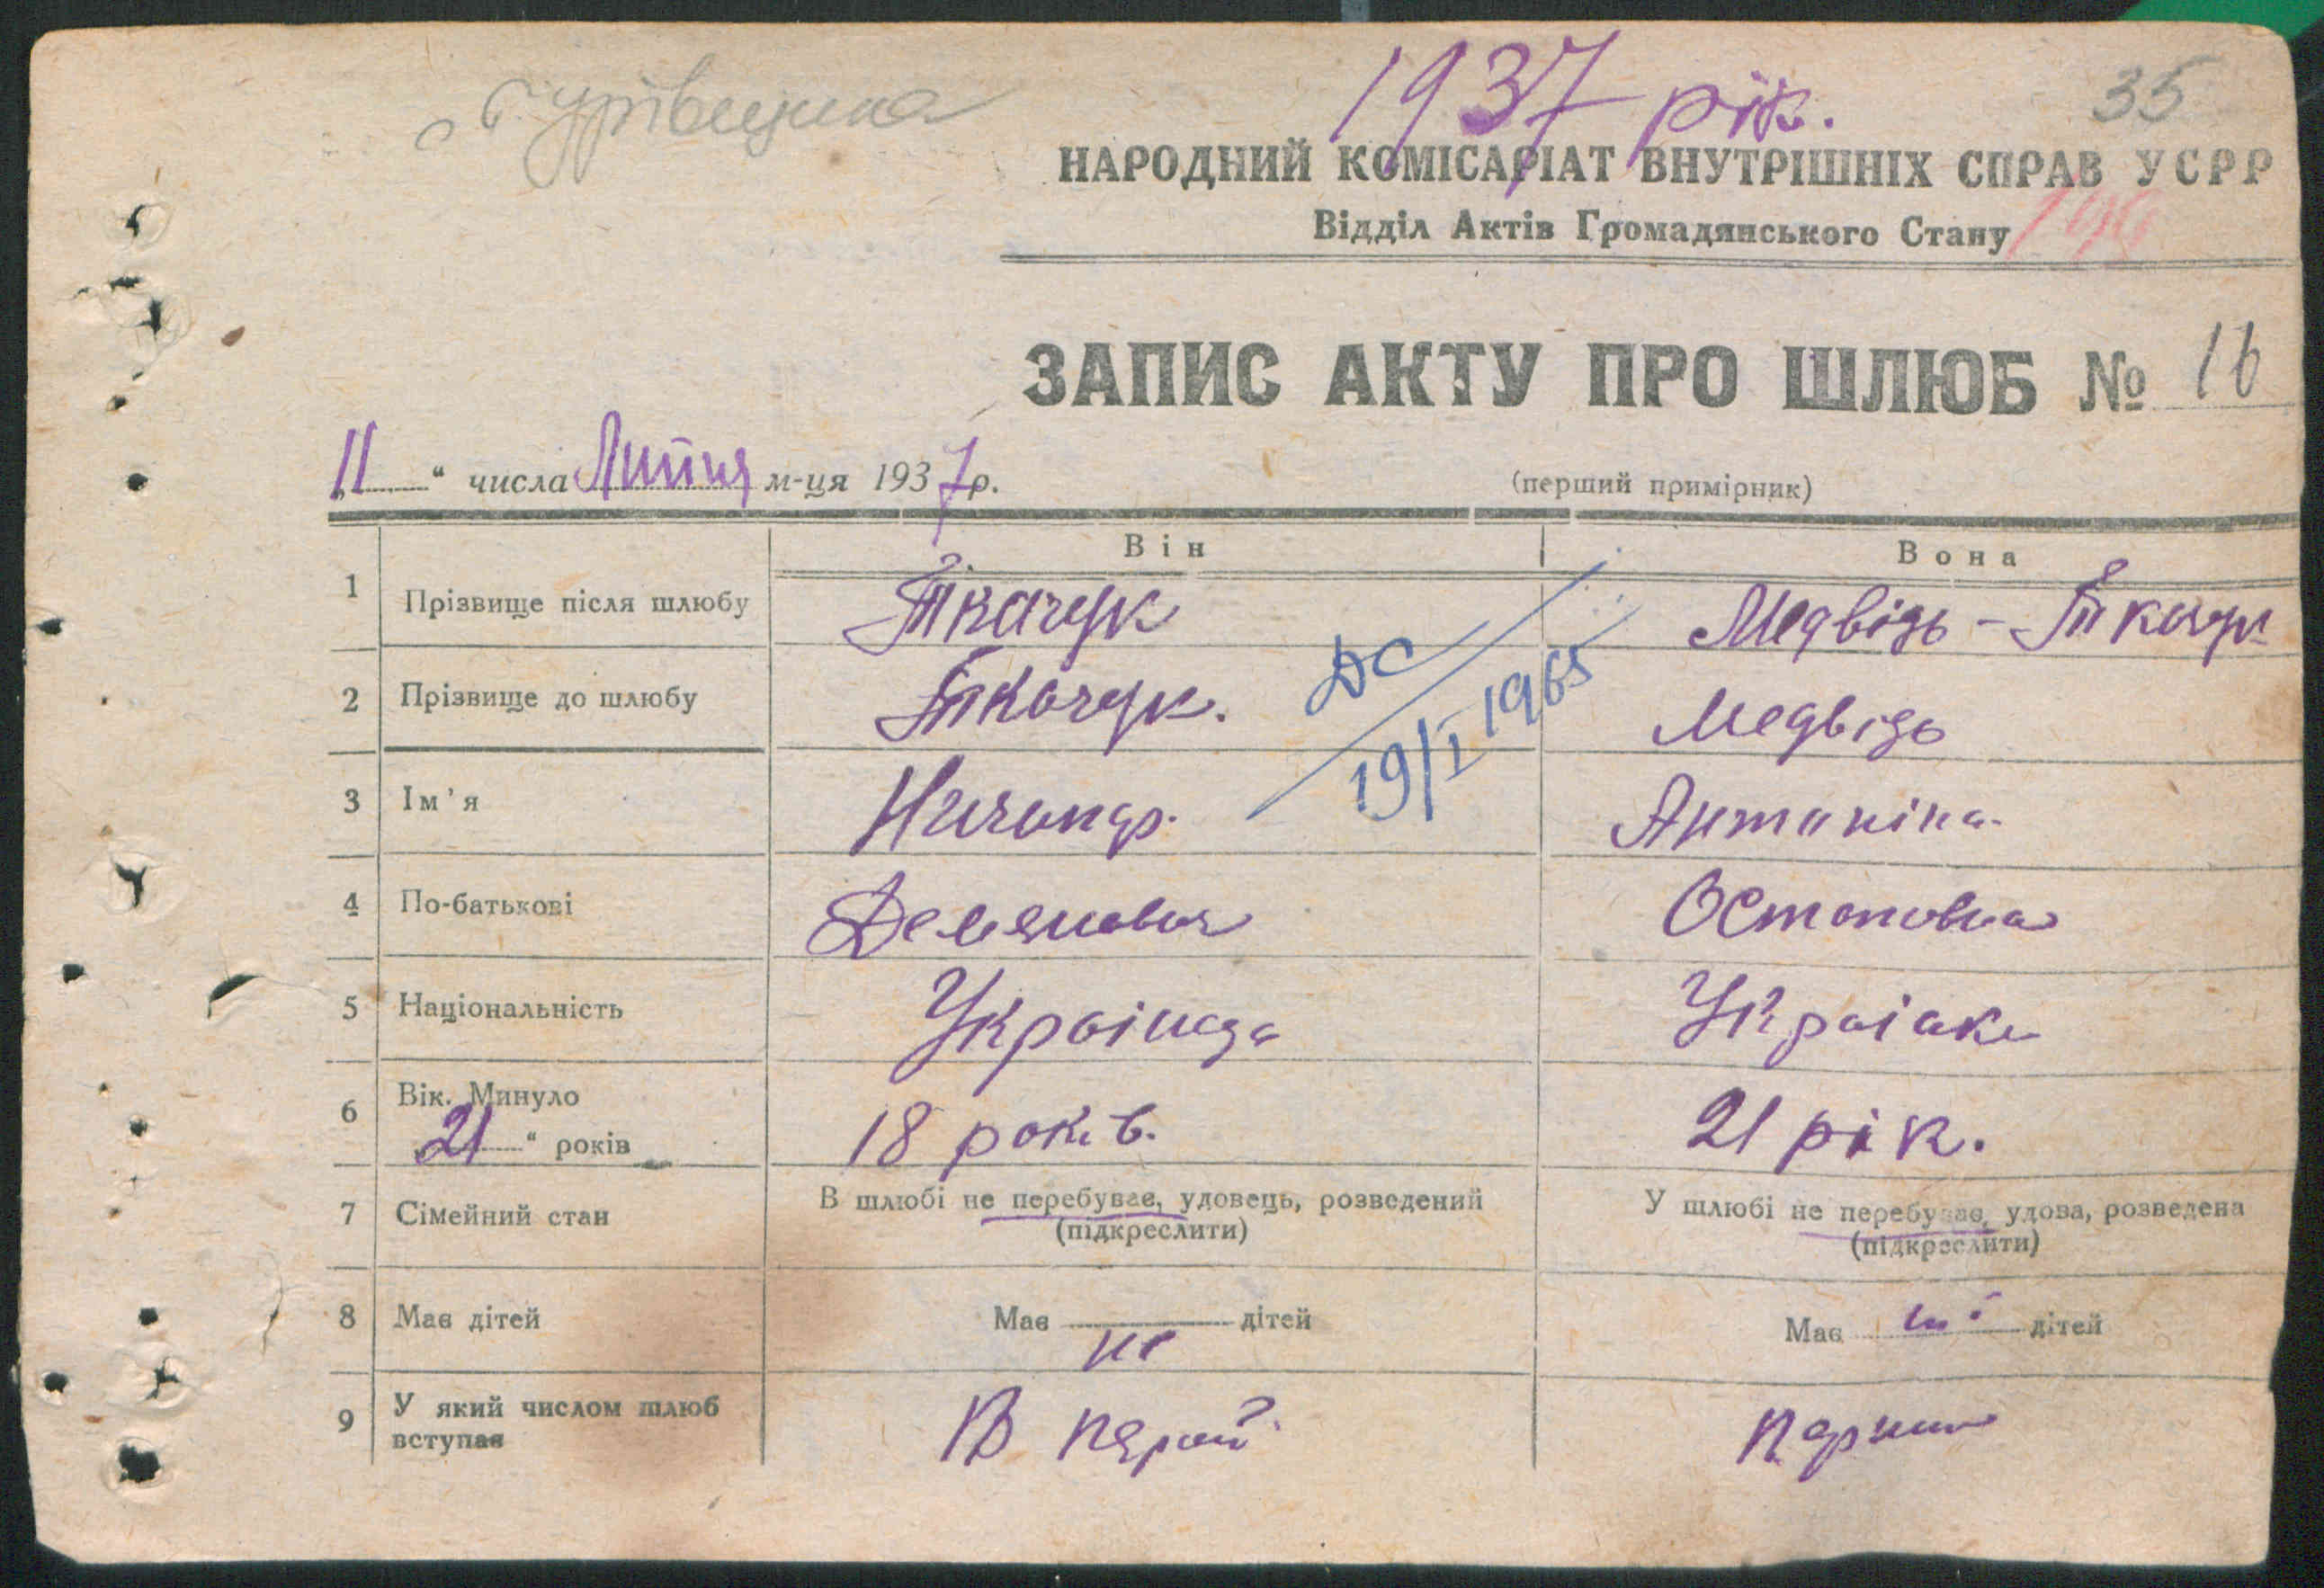 с Гурівщина
1937 рік.
35
НАРОДНИЙ КОМІСАРІАТ ВНУТРІШНІХ СПРАВ УСРР
Відділ Актів Громадянського Стану
ЗАПИС АКТУ ПРО ШЛЮБ № 16
„11“ числа Липня м-ця 1937р.
(перший примірник)
Він
Вона
1 Прізвище після шлюбу Ткачук Медвідь-Ткачук
2 Прізвище до шлюбу Ткачук. Медвідь
ДС
19/I 1965
3 Ім'я Ничипор. Антоніна.
4 По-батькові Демянович Остаповна
5 Національність Українец Украінка
6 Вік. Минуло
„21“ років 18 років. 21 рік.
7 Сімейний стан В шлюбі не перебуває, удовець, розведений У шлюбі не перебуває, удова, розведена
(підкреслити) (підкреслити)
8 Має дітей Має не дітей Має дітей
9 У який числом шлюб В перший перший
вступає